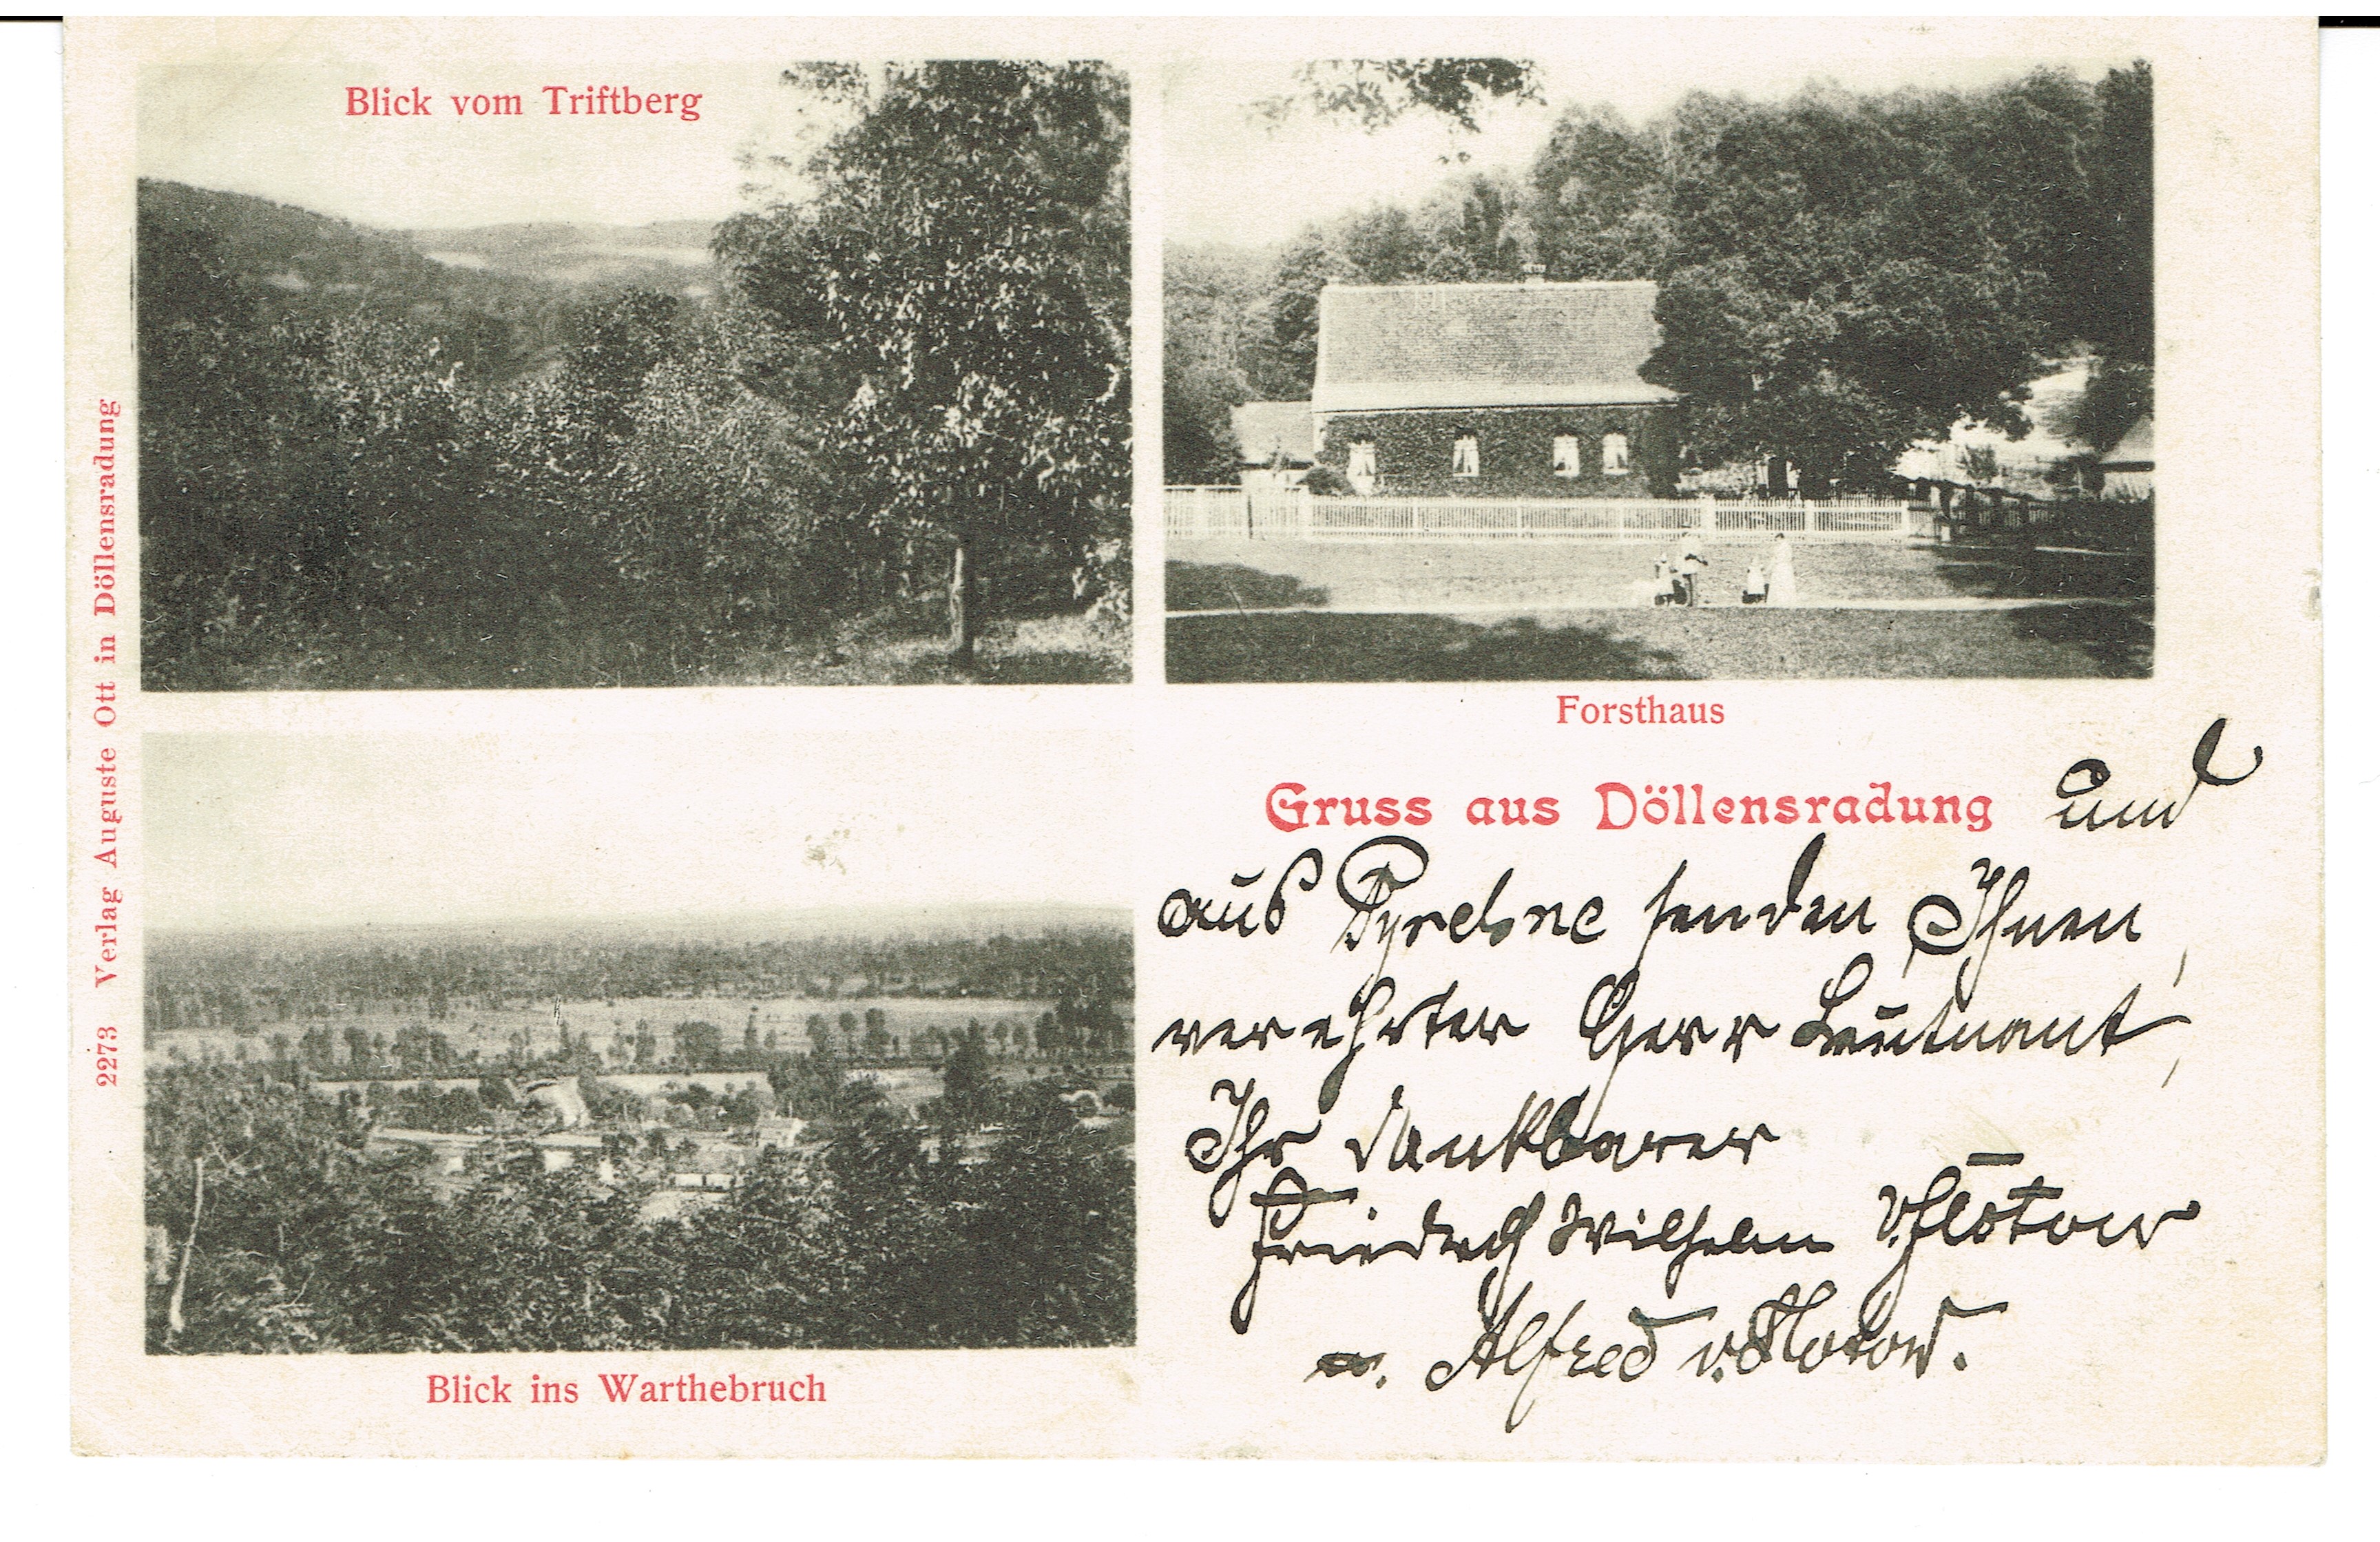 Blick vom Triftberg
Forsthaus
2273 Verlag Auguste Ott in Döllensradung
Gruss aus Döllensradung und
aus Pyrehne senden Ihnen,
verehrter Herr Leutnant,
Ihr dankbarer
Friedrich Wilhelm v. Flotow
u. Alfred v. Flotow.
Blick ins Warthebruch